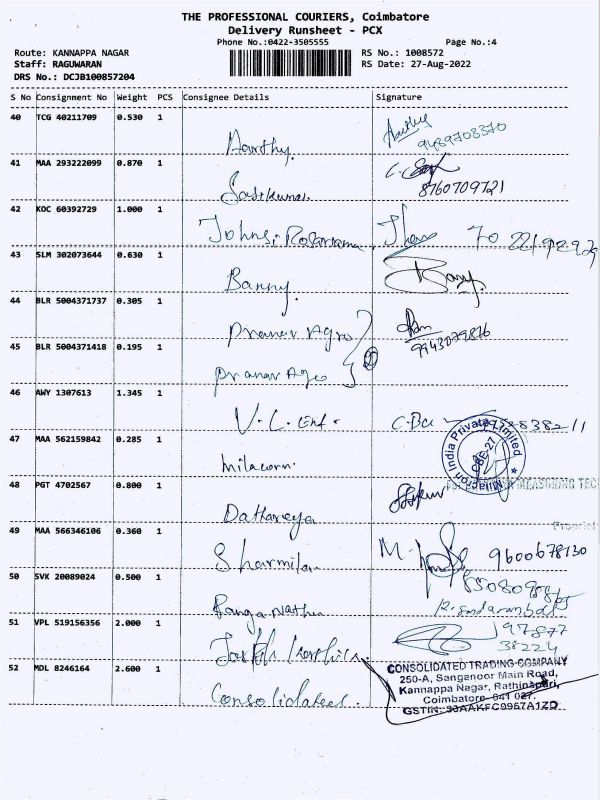 THE PROFESSIONAL COURIERS, Coimbatore
Delivery Runsheet - PCX
Phone No.:0422-3505555 Page No.:4
Route: KANNAPPA NAGAR RS No.: 1008572
Staff: RAGUWARAN RS Date: 27-Aug-2022
DRS No.: DCJB100857204
S No Consignment No Weight PCS Consignee Details Signature
40 TCG 40211709 0.530 1
Aarthy. 9489708370
41 MAA 293222099 0.870 1
Sasikumar. 8760709721
42 KOC 60392729 1.000 1
43 SLM 302073644 0.630 1
Banny.
44 BLR 5004371737 0.305 1
Pranav Agro 9943079816
45 BLR 5004371418 0.195 1
Pranav Agro
46 AWY 1307613 1.345 1
V.C. Ent.
47 MAA 562159842 0.285 1
Milacron.
48 PGT 4702567 0.800 1
Dattareya
49 MAA 566346106 0.360 1
Sharmila 9600678130
50 SVK 20089024 0.500 1
Ranganathan
51 VPL 519156356 2.000 1
97877
Joseph Karthick 38224
52 MDL 8246164 2.600 1
Consolidated.
CONSOLIDATED TRADING COMPANY
250-A, Sanganoor Main Road,
Kannappa Nagar, Rathinapuri,
Coimbatore- 641 027.
GSTIN: 33AAKFC9967A1ZD